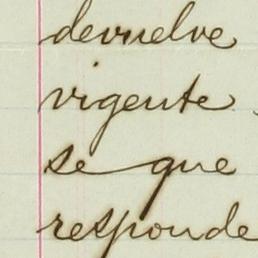 devuelve
vigente
se que
responde